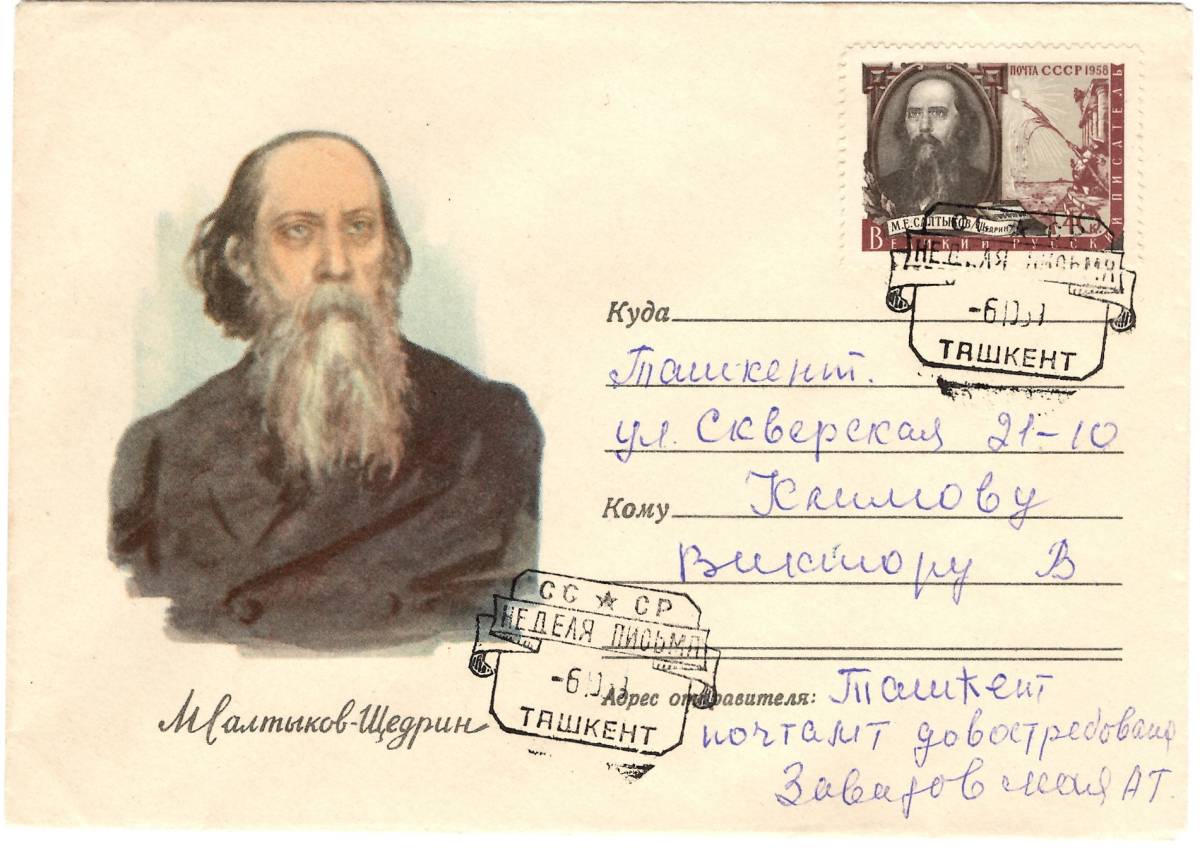 ПОЧТА СССР 1958
М.Е.САЛТЫКОВ/ЩЕДРИН
ВЕЛИКИЙ РУССКИЙ ПИСАТЕЛЬ
НЕДЕЛЯ ПИСЬМА
ТАШКЕНТ
Куда
Ташкент.
ул. Скверская 21-10
Кому Климову
Виктору В
СС ★ СР
НЕДЕЛЯ ПИСЬМА
ТАШКЕНТ
Адрес отправителя: Ташкент
почтамт довостребования
Завадовская АТ.
МСалтыков-Щедрин